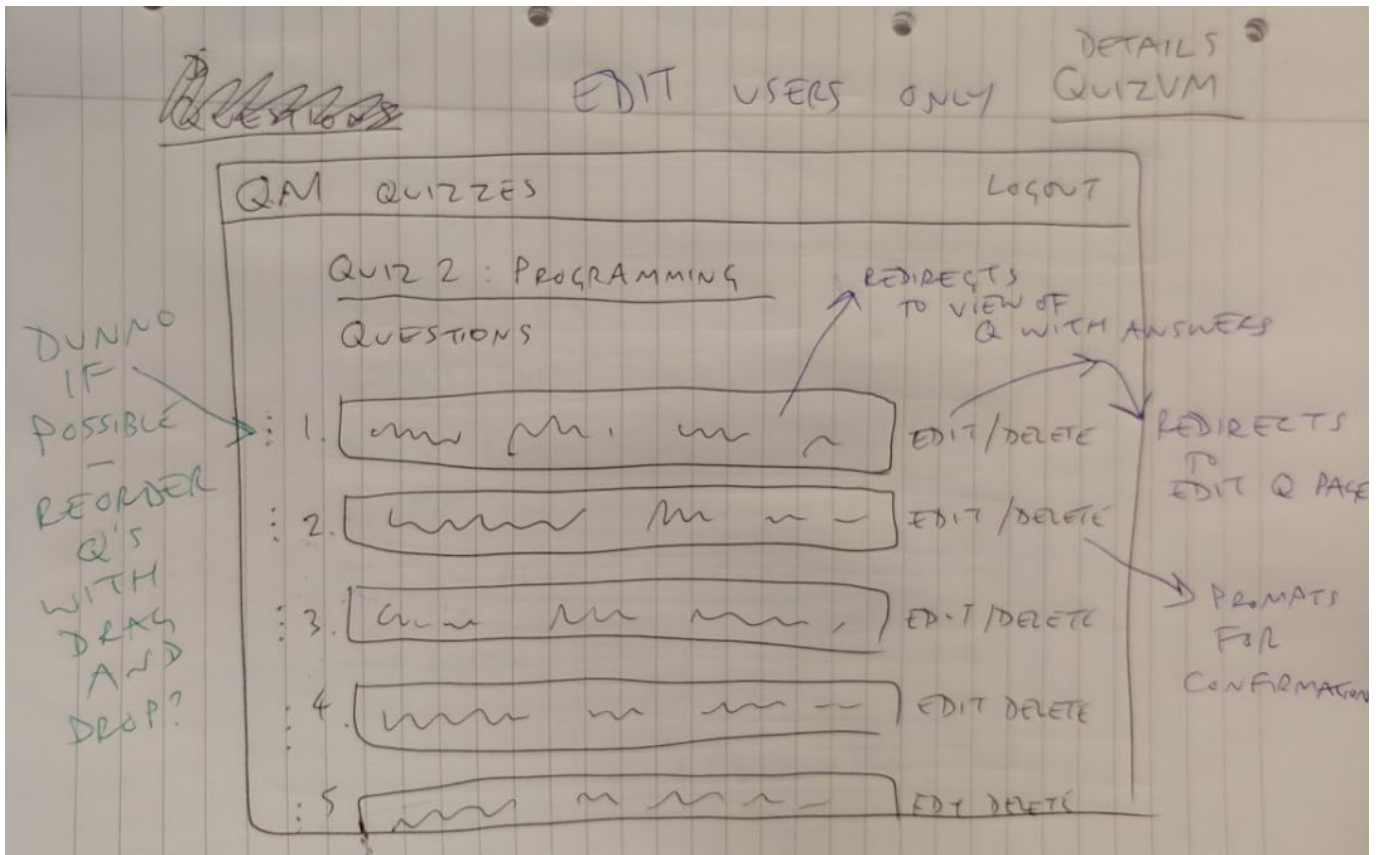 DETAILS
EDIT USERS ONLY QUIZVM
QM QUIZZES LOGOUT
QUIZ 2 : PROGRAMMING
QUESTIONS
REDIRECTS
TO VIEW OF
Q WITH ANSWERS
DUNNO
IF
POSSIBLE
—
REORDER
Q'S
WITH
DRAG
AND
DROP?
1. EDIT/DELETE
2. EDIT/DELETE
3. EDIT/DELETE
4. EDIT DELETE
5 EDT DELETE
REDIRECTS
TO
EDIT Q PAGE
PROMPTS
FOR
CONFIRMATION